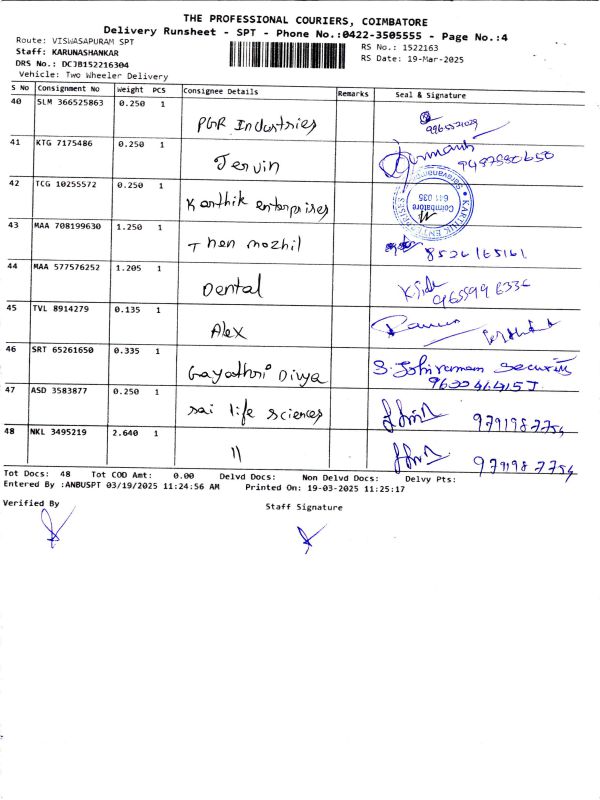 THE PROFESSIONAL COURIERS, COIMBATORE
Delivery Runsheet - SPT - Phone No.:0422-3505555 - Page No.:4
Route: VISWASAPURAM SPT
RS No.: 1522163
Staff: KARUNASHANKAR
RS Date: 19-Mar-2025
DRS No.: DCJB152216304
Vehicle: Two Wheeler Delivery
S No Consignment No Weight PCS Consignee Details Remarks Seal & Signature
40 SLM 366525863 0.250 1 PGR Industries
41 KTG 7175486 0.250 1 Jervin
42 TCG 10255572 0.250 1 Karthik enterprises
KARTHIK ENTERPRISES Saravanampatti Coimbatore 641 035
43 MAA 708199630 1.250 1 Then mozhil 8526165161
44 MAA 577576252 1.205 1 Dental 9655996336
45 TVL 8914279 0.135 1 Alex
46 SRT 65261650 0.335 1 Gayathri Divya
47 ASD 3583877 0.250 1 sai life sciences 9791987754
48 NKL 3495219 2.640 1 11 9791987754
Tot Docs: 48 Tot COD Amt: 0.00 Delvd Docs: Non Delvd Docs: Delvy Pts:
Entered By :ANBUSPT 03/19/2025 11:24:56 AM Printed On: 19-03-2025 11:25:17
Verified By
Staff Signature